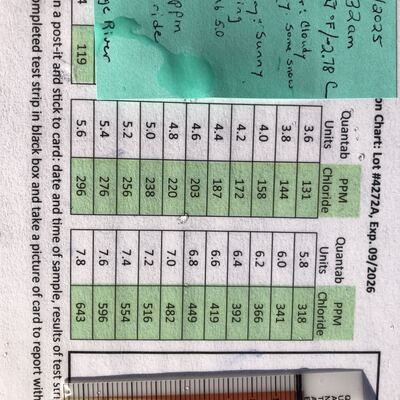 /2025
32am
°F/-2.78 C
Cloudy
some snow
: Sunny
5.0
ppm
River
119
on Chart: Lot #4272A, Exp. 09/2026
Quantab Units PPM Chloride
3.6 131
3.8 144
4.0 158
4.2 172
4.4 187
4.6 203
4.8 220
5.0 238
5.2 256
5.4 276
5.6 296
Quantab Units PPM Chloride
5.8 318
6.0 341
6.2 366
6.4 392
6.6 419
6.8 449
7.0 482
7.2 516
7.4 554
7.6 596
7.8 643
n a post-it and stick to card: date and time of sample, results of test stri
ompleted test strip in black box and take a picture of card to report with